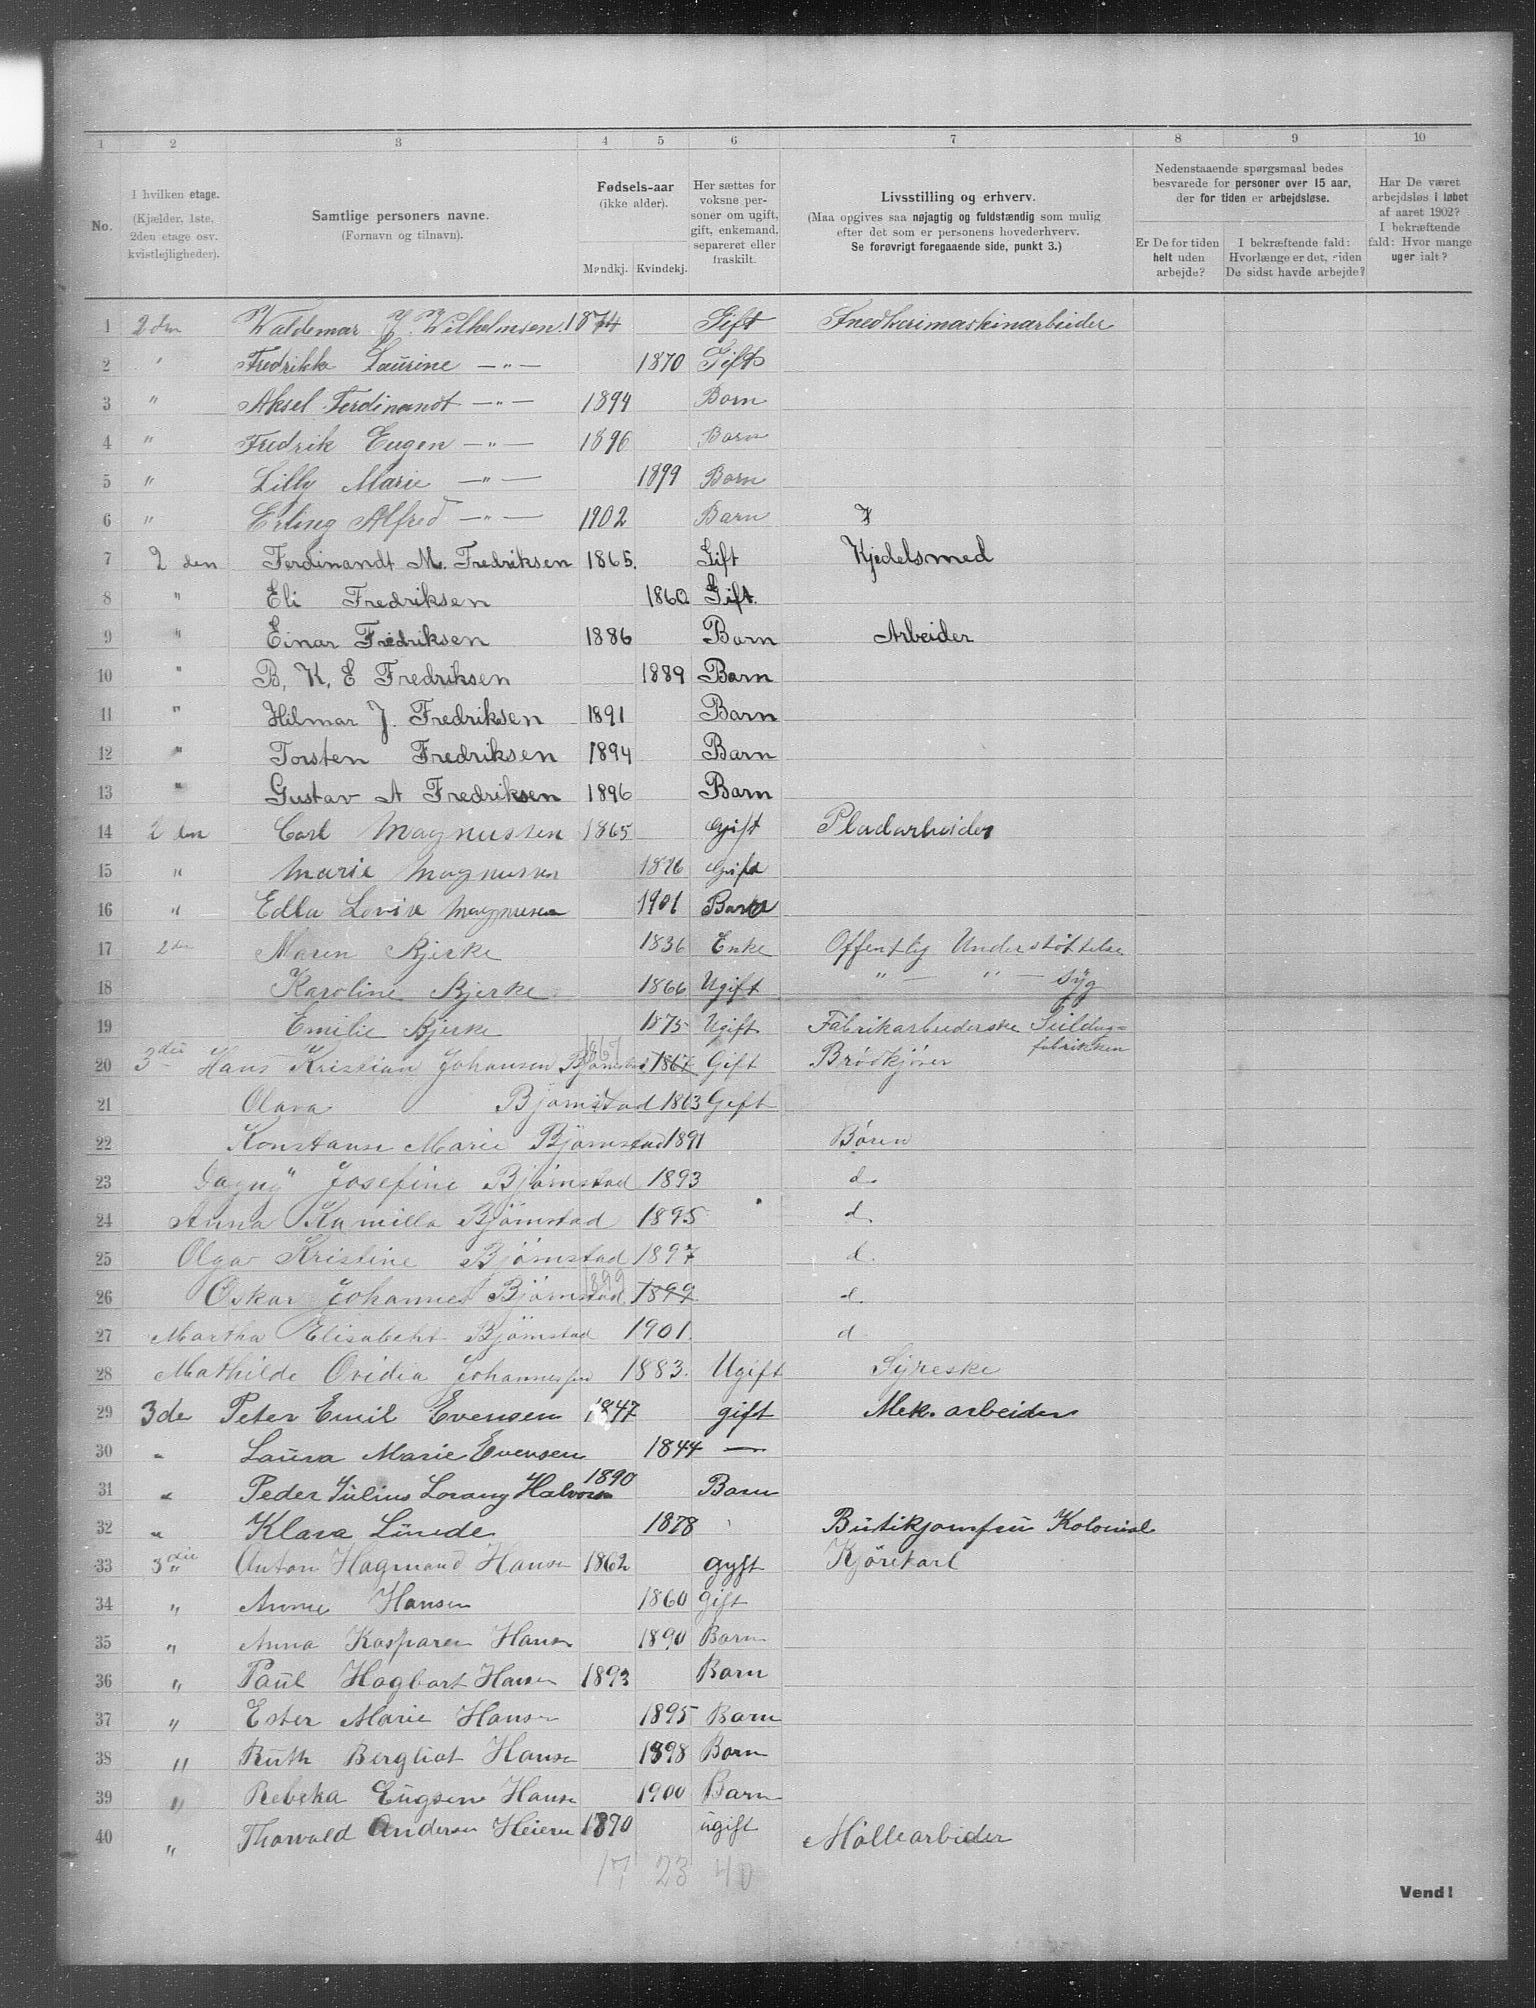 1 2 3 4 5 6 7 8 9 10
No.
I hvilken etage.
(Kjælder, 1ste, 2den etage osv. kvistlejligheder).
Samtlige personers navne.
(Fornavn og tilnavn).
Fødsels-aar
(ikke alder).
Mandkj. Kvindekj.
Her sættes for voksne personer om ugift, gift, enkemand, separeret eller fraskilt.
Livsstilling og erhverv.
(Maa opgives saa nøjagtig og fuldstændig som mulig
efter det som er personens hovederhverv.
Se forøvrigt foregaaende side, punkt 3.)
Nedenstaaende spørgsmaal bedes
besvarede for personer over 15 aar,
der for tiden er arbejdsløse.
Er De for tiden helt uden arbejde?
I bekræftende fald: Hvorlænge er det, siden De sidst havde arbejde?
Har De været arbejdsløs i løbet af aaret 1902? I bekræftende fald: Hvor mange uger ialt?
1 2den Waldemar Wilhelmsen 1874 Gift Snedkerimaskinarbeider
2 " Fredrikke Laurine —"— 1870 Gift
3 " Aksel Ferdinandt —"— 1894 Barn
4 " Fredrik Eugen —"— 1896 Barn
5 " Lilly Marie —"— 1899 Barn
6 " Erling Alfred —"— 1902 Barn
7 2 den Ferdinandt M. Fredriksen 1865. Gift Kjedelsmed
8 " Eli Fredriksen 1860 Gift.
9 " Einar Fredriksen 1886 Barn Arbeider
10 " B, K, E Fredriksen 1889 Barn
11 " Hilmar J. Fredriksen 1891 Barn
12 " Torsten Fredriksen 1894 Barn
13 " Gustav A Fredriksen 1896 Barn
14 2 den Carl Magnussen 1865 Gift Pladarbeider
15 " Marie Magnusen 1876 Gift
16 " Edla Lovise Magnusen 1901 Barn
17 2de Maren Bjerke 1836 Enke Offentlig Understøttelse
18 Karoline Bjerke 1866 Ugift " — " — syg
19 Emilie Bjerke 1875 Ugift Fabrikarbederske Seildugsfabrikken
20 3die Hans Kristian Johansen Bjørnstad 1867 1867 Gift Brødkjører
21 Olava Bjørnstad 1863 Gift
22 Konstanse Marie Bjørnstad 1891 Børn
23 Dagny Josefine Bjørnstad 1893 d.
24 Anna Kamilla Bjørnstad 1895 d.
25 Olga Kristine Bjørnstad 1897 d.
26 Oskar Johannes Bjørnstad 1899 1899 d.
27 Martha Elisabeht Bjørnstad 1901. d.
28 Mathilde Ovidia Johannesen 1883. Ugift Syreske
29 3de Peter Emil Evensen 1847 gift Mek. arbeider
30 " Laura Marie Evensen 1844 —
31 " Peder Julius Lorang Halvorsen 1890 Barn
32 " Klara Linde 1878 Butikjomfru Kolonial
33 3die Anton Hagmand Hansen 1862 gyft Kjørekarl
34 " Annie Hansen 1860 gift
35 " Anna Kasparen Hansen 1890 Barn
36 " Paul Hagbart Hansen 1893 Barn
37 " Ester Marie Hansen 1895 Barn
38 " Ruth Bergliot Hansen 1898 Barn
39 " Rebeka Eugsene Hansen 1900 Barn
40 " Thorvald Andersen Heieren 1870 ugift Møllearbider
17 23 40
Vend!